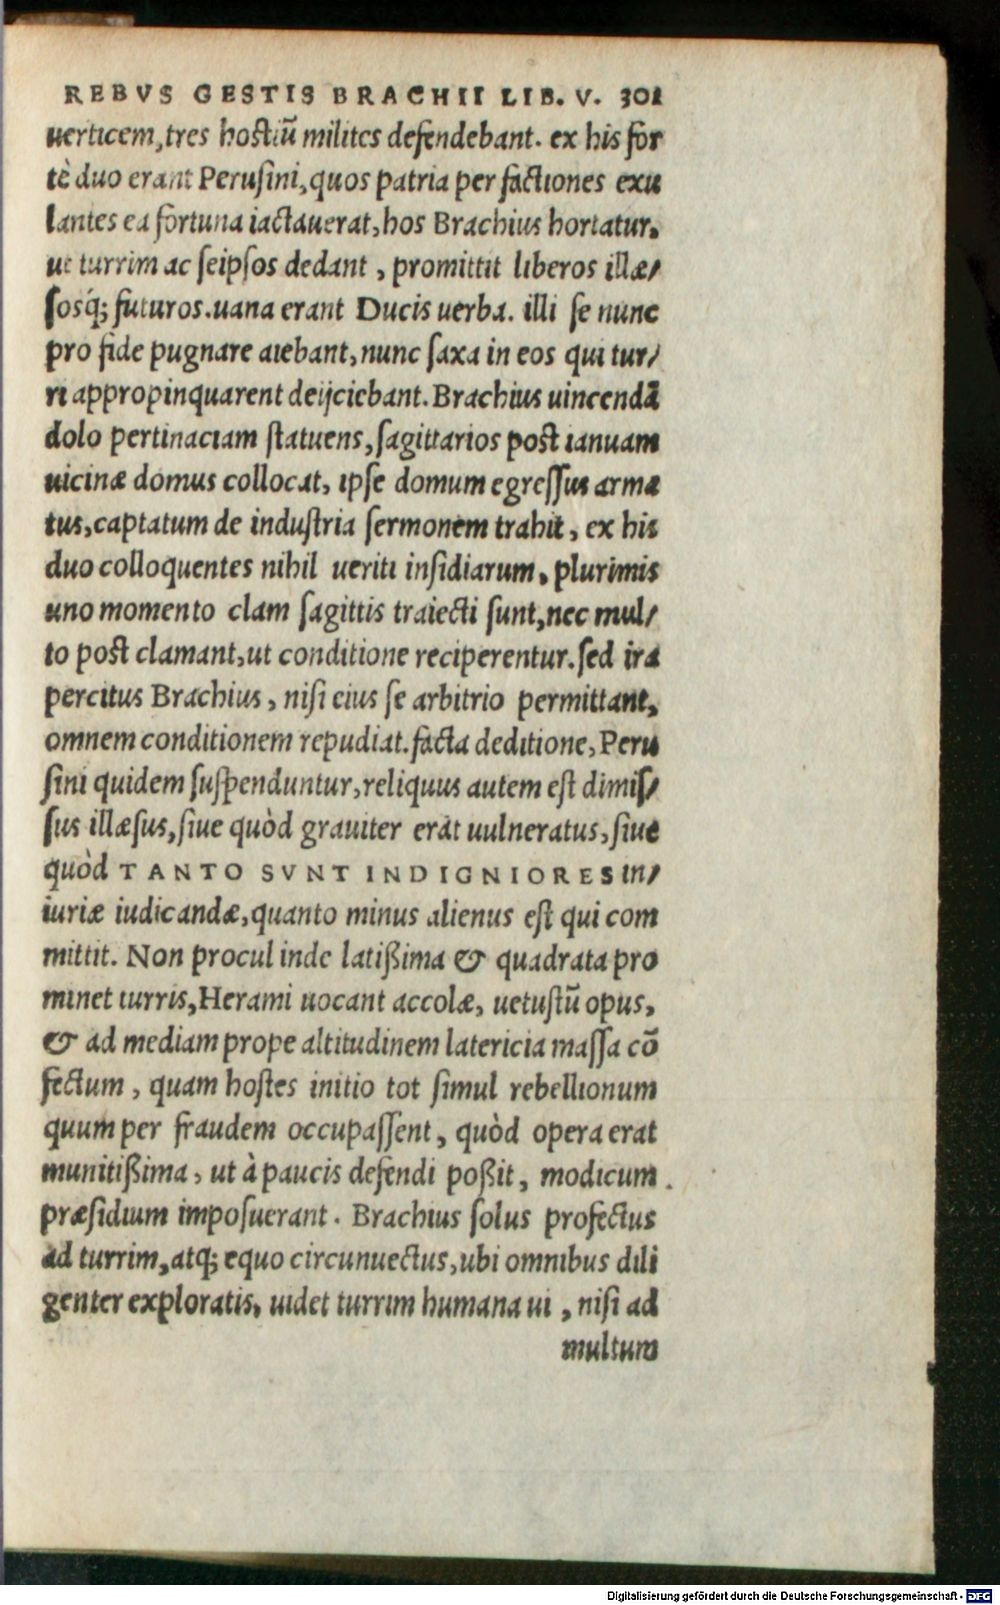 REBVS GESTIS BRACHII LIB. V. 301
uerticem, tres hostiũ milites defendebant. ex his for
tè duo erant Perusini, quos patria per factiones exu
lantes ea fortuna iactauerat, hos Brachius hortatur,
ut turrim ac seipsos dedant, promittit liberos illæ/
sosq́; futuros. uana erant Ducis uerba. illi se nunc
pro fide pugnare aiebant, nunc saxa in eos qui tur/
ri appropinquarent deijciebant. Brachius uincendã
dolo pertinaciam statuens, sagittarios post ianuam
uicinæ domus collocat, ipse domum egressus arma
tus, captatum de industria sermonem trahit, ex his
duo colloquentes nihil ueriti insidiarum, plurimis
uno momento clam sagittis traiecti sunt, nec mul/
to post clamant, ut conditione reciperentur. sed ira
percitus Brachius, nisi eius se arbitrio permittant,
omnem conditionem repudiat. facta deditione, Peru
sini quidem suspenduntur, reliquus autem est dimis/
sus illæsus, siue quòd grauiter erat uulneratus, siue
quòd TANTO SVNT INDIGNIORES in/
iuriæ iudicandæ, quanto minus alienus est qui com
mittit. Non procul inde latißima & quadrata pro
minet turris, Herami uocant accolæ, uetustũ opus,
& ad mediam prope altitudinem latericia massa cõ
fectum, quam hostes initio tot simul rebellionum
quum per fraudem occupassent, quòd opera erat
munitißima, ut à paucis defendi poßit, modicum
præsidium imposuerant. Brachius solus profectus
ad turrim, atq; equo circunuectus, ubi omnibus dili
genter exploratis, uidet turrim humana ui, nisi ad
multum
Digitalisierung gefördert durch die Deutsche Forschungsgemeinschaft - DFG